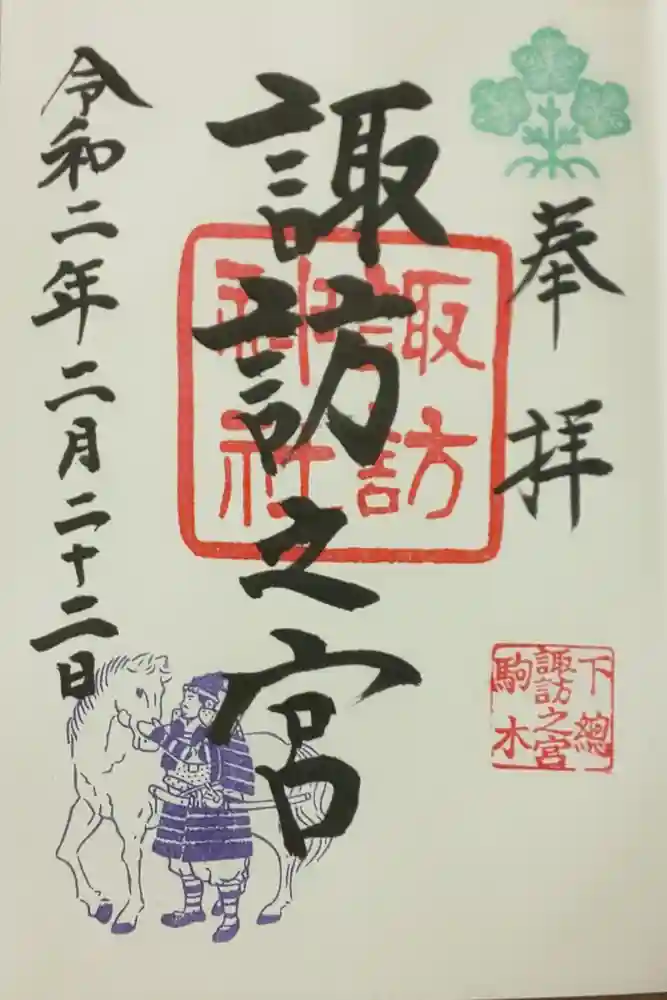 奉拝
諏訪之宮
諏訪
神社
下總
諏訪之宮
駒木
令和二年二月二十二日